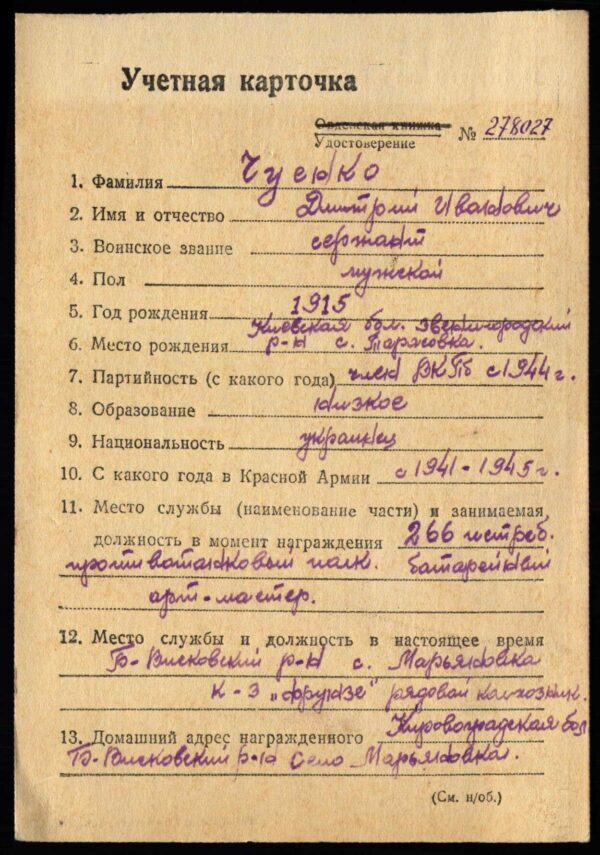 Учетная карточка
Орденская книжка
Удостоверение № 278027
1. Фамилия Чуенко
2. Имя и отчество Дмитрий Иванович
3. Воинское звание сержант
4. Пол мужской
5. Год рождения 1915
Киевская обл. Звенигородский
6. Место рождения р-н с. Тарасовка.
7. Партийность (с какого года) член ВКПб с 1944 г.
8. Образование низкое
9. Национальность украинец
10. С какого года в Красной Армии с 1941-1945 г.
11. Место службы (наименование части) и занимаемая
должность в момент награждения 266 истреб.
противотанковый полк. батарейный
арт-мастер.
12. Место службы и должность в настоящее время
Б-Висковский р-н с. Марьяновка
к-з „Фрунзе" рядовой колхозник.
13. Домашний адрес награжденного Кировоградская обл
Б-Висковский р-н село Марьяновка.
(См. н/об.)